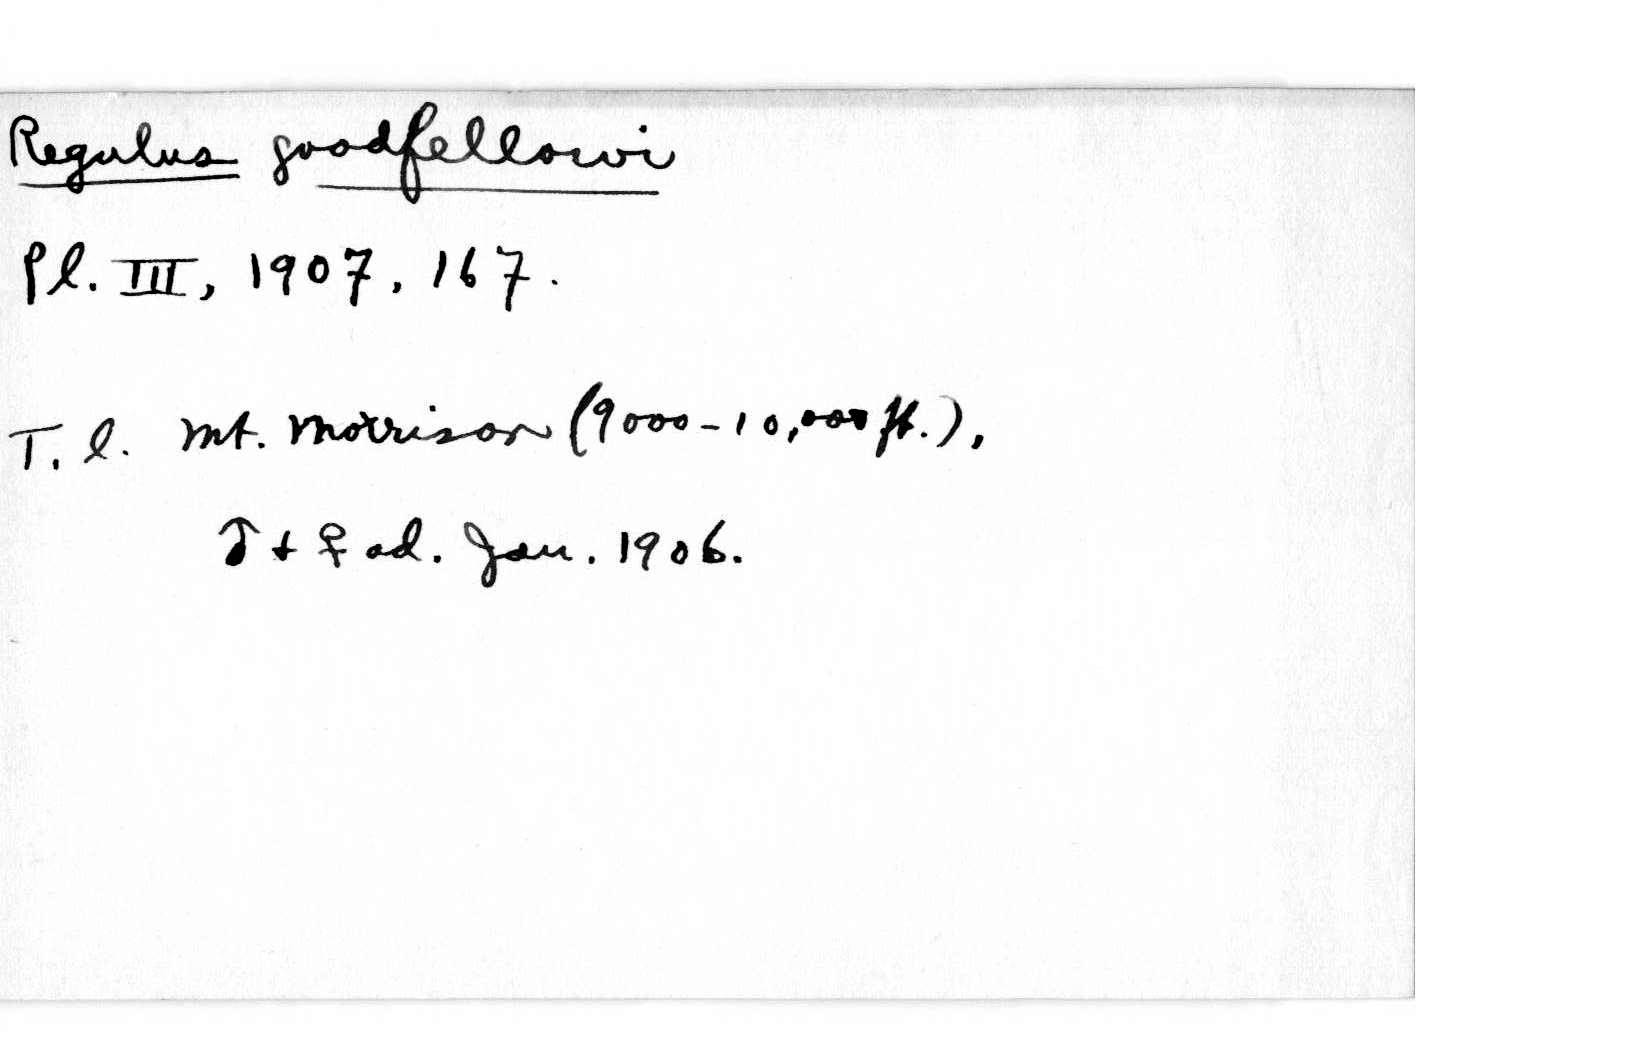 Regulus goodfellowi
Pl. III, 1907, 167.
T. l. Mt. Morrison (9000-10,000 ft.),
♂ + ♀ ad. Jan. 1906.